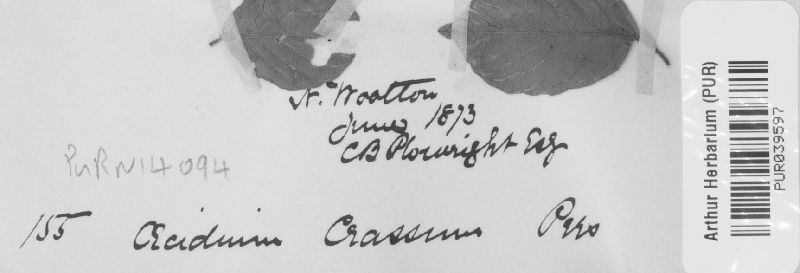 N. Wootton
June 1873
CB Plowright Esq
PURN14094
155 Œcidium Crassum Pers
Arthur Herbarium (PUR)
PUR039597